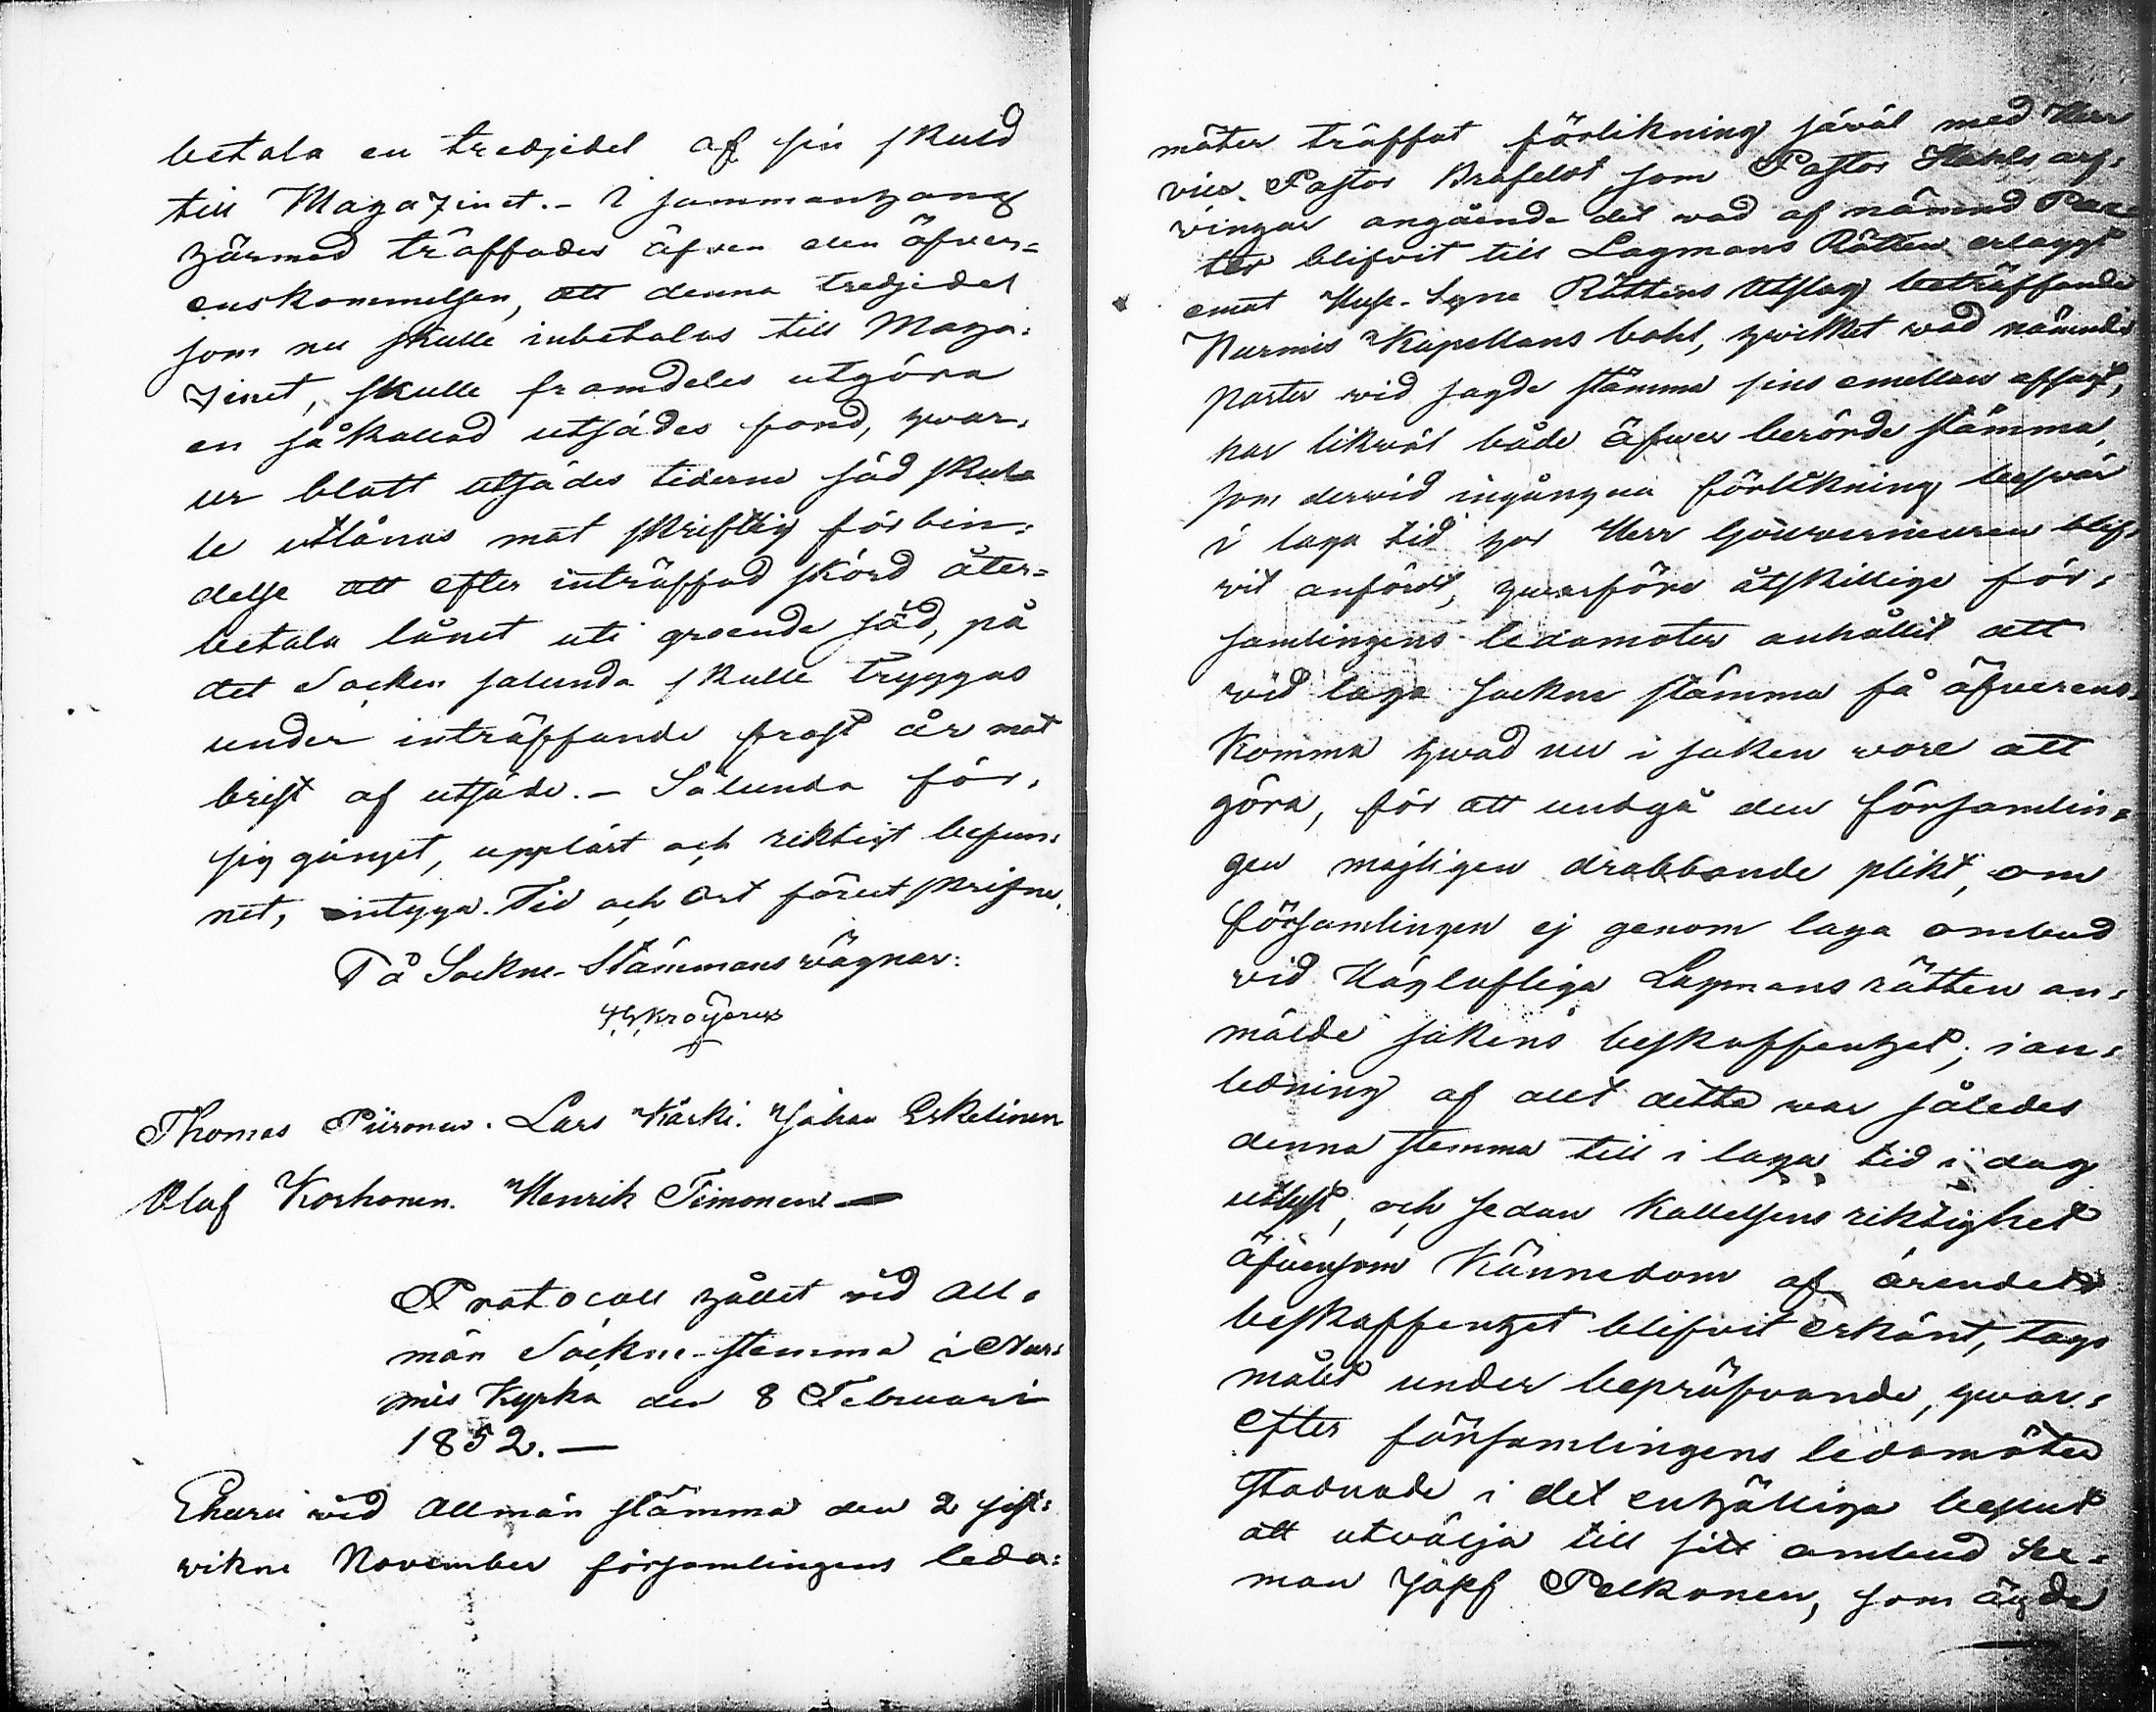 betala en tredjedel af sin skuld
till Magazinet. – I sammanhang
härmed träffades äfven den öfver=
enskommelsen, att denna tredjedel
som nu skulle inbetalas till Maga=
zinet, skulle framdeles utgöra
en så kallad utsädes fond, hvar=
ur blott utsädes tiderne säd skul=
le utlånas mot skriftlig förbin=
delse att efter inträffad skörd åter=
betala lånet uti groende säd, på
det Socken salunda skulle tryggas
under inträffande frost år mot
brist af utsäde. – Sålunda för=
sig gånget, uppläst och riktigt befun=
net, intyga. Tid och Ort förut skrifne.
På Sockne-Stämmans vägnar:
Thomas Piironen. Lars Kärki. Johan Eskelinen
Olof Korhonen. Henrik Timonen —
Protocoll hållet vid All=
män Sockne-stemma i Nur=
mis Kyrka den 8 Februari
1852. —
Ehuru vid Allmän stämma den 2 sist=
vikne November församlingens leda=
möter träffat förlikning såväl med Herr
vice Pastor Brofeldt som Pastor Stahls arf=
vingar angående det vad af nämnd Par=
ter blifvit till Lagmans Rätten erlagdt
emot Huse-Syne Rättens Utslag beträffande
Nurmis Kapellans bohl, hvilket vad nämnde
parter vid sagde stämma sins emellan afsagt,
har likväl både öfver berörde stämma,
som dervid ingångna förlikning besvär
i laga tid hos Herr Gouverneuren blif=
vit anfördt, hvarföre åtskillige för=
samlingens ledamöter anhållit att
vid laga sockne stämma få öfverens=
komma hvad nu i saken vore att
göra, för att undgå den församlin=
gen möjligen drabbande plikt, om
församlingen ej genom laga ombud
vid Häglofliga Lagmans rätten an=
mälde sakens beskaffenhet; i an=
ledning af allt detta var således
denna stemma till i laga tid i dag
utlyst, och sedan kallelsens riktighet
äfvensom kännedom af ärendets
beskaffenhet blifvit erkänt, togs
målet under bepröfvande, hvar=
efter församlingens ledamöter
stadnade i det enhälliga beslut
att utvälja till sitt ombud
man Josef Pelkonen, som ägde